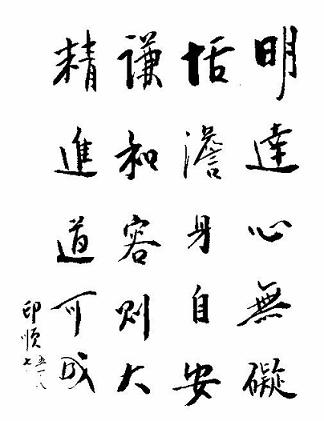 明達心無礙
恬澹身自安
謙和容則大
精進道可成
印順